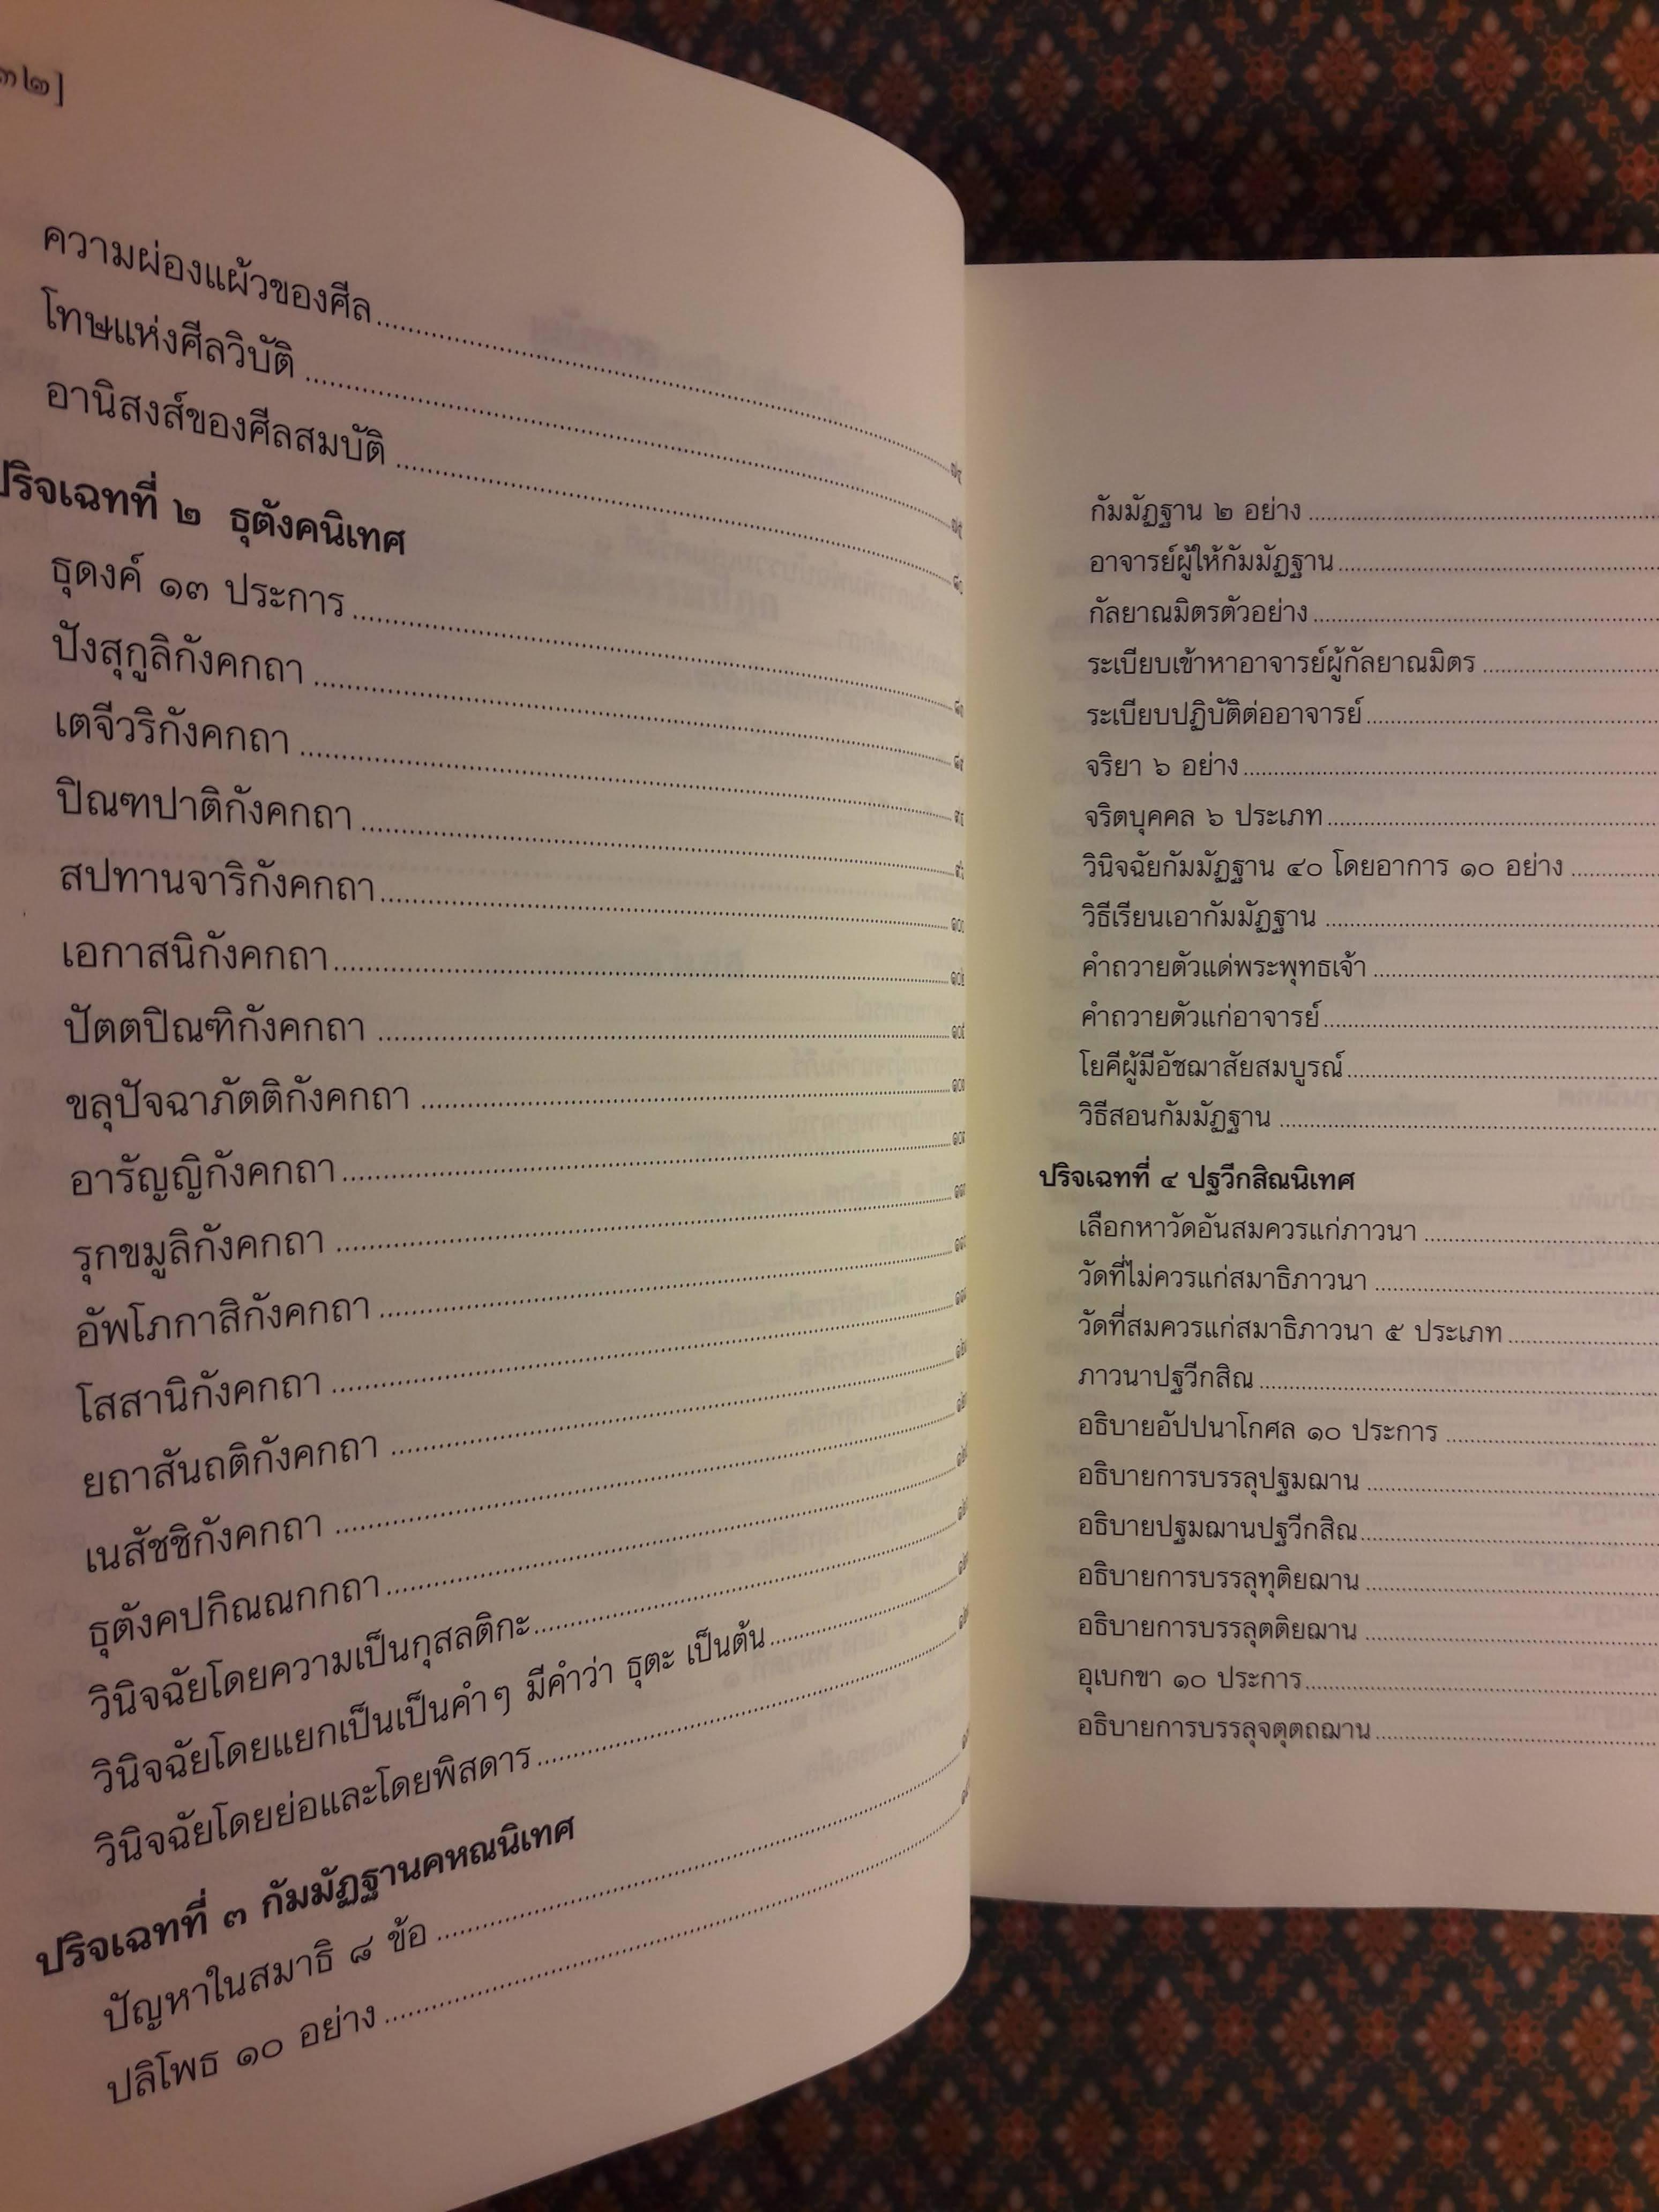 ๓๒]
ความผ่องแผ้วของศีล
โทษแห่งศีลวิบัติ
อานิสงส์ของศีลสมบัติ
ปริจเฉทที่ ๒ ธุตังคนิเทศ
ธุดงค์ ๑๓ ประการ
ปังสุกูลิกังคกถา
เตจีวริกังคกถา
ปิณฑปาติกังคกถา
สปทานจาริกังคกถา
เอกาสนิกังคกถา
ปัตตปิณฑิกังคกถา
ขลุปัจฉาภัตติกังคกถา
อารัญญิกังคกถา
รุกขมูลิกังคกถา
อัพโภกาสิกังคกถา
โสสานิกังคกถา
ยถาสันถติกังคกถา
เนสัชชิกังคกถา
ธุตังคปกิณณกกถา
วินิจฉัยโดยความเป็นกุสลติกะ
วินิจฉัยโดยแยกเป็นเป็นคำๆ มีคำว่า ธุตะ เป็นต้น
วินิจฉัยโดยย่อและโดยพิสดาร
ปริจเฉทที่ ๓ กัมมัฏฐานคหณนิเทศ
ปัญหาในสมาธิ ๘ ข้อ
ปลิโพธ ๑๐ อย่าง
กัมมัฏฐาน ๒ อย่าง
อาจารย์ผู้ให้กัมมัฏฐาน
กัลยาณมิตรตัวอย่าง
ระเบียบเข้าหาอาจารย์ผู้กัลยาณมิตร
ระเบียบปฏิบัติต่ออาจารย์
จริยา ๖ อย่าง
จริตบุคคล ๖ ประเภท
วินิจฉัยกัมมัฏฐาน ๔๐ โดยอาการ ๑๐ อย่าง
วิธีเรียนเอากัมมัฏฐาน
คำถวายตัวแด่พระพุทธเจ้า
คำถวายตัวแก่อาจารย์
โยคีผู้มีอัชฌาสัยสมบูรณ์
วิธีสอนกัมมัฏฐาน
ปริจเฉทที่ ๔ ปฐวีกสิณนิเทศ
เลือกหาวัดอันสมควรแก่ภาวนา
วัดที่ไม่ควรแก่สมาธิภาวนา
วัดที่สมควรแก่สมาธิภาวนา ๕ ประเภท
ภาวนาปฐวีกสิณ
อธิบายอัปปนาโกศล ๑๐ ประการ
อธิบายการบรรลุปฐมฌาน
อธิบายปฐมฌานปฐวีกสิณ
อธิบายการบรรลุทุติยฌาน
อธิบายการบรรลุตติยฌาน
อุเบกขา ๑๐ ประการ
อธิบายการบรรลุจตุตถฌาน